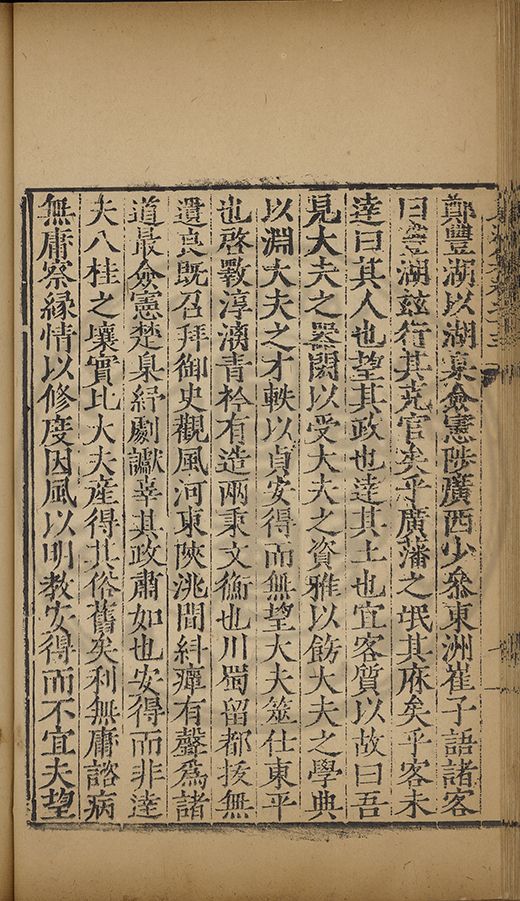 鄭豐湖以湖臬僉憲陟廣西少叅東洲崔子語諸客
曰豐湖茲行其克官矣乎廣藩之氓其庥矣乎客未
逹曰其人也望其政也逹其土也宜客質以故曰吾
見大夫之噐閎以受大夫之資雅以飭大夫之學典
以淵大夫之才軼以貞安得而無望大夫筮仕東平
也啓斁淳漓青衿有造兩秉文衡也川蜀留都㧞無
遺良既召拜御史觀風河東陜洮間糾癉有聲爲諸
道最僉憲楚臬紓劇讞辜其政肅如也安得而非逹
夫八桂之壤實比大夫産得其俗舊矣利無庸諮病
無庸察緣情以修度因風以明教安得而不宜夫望